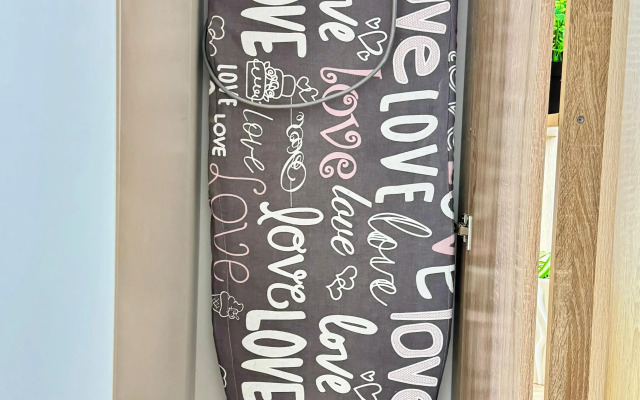 LOVE
love
love
LOVE
LOVE
love
love
love
LOVE
love
LOVE
love
love
love
LOVE
love
love
LOVE
love